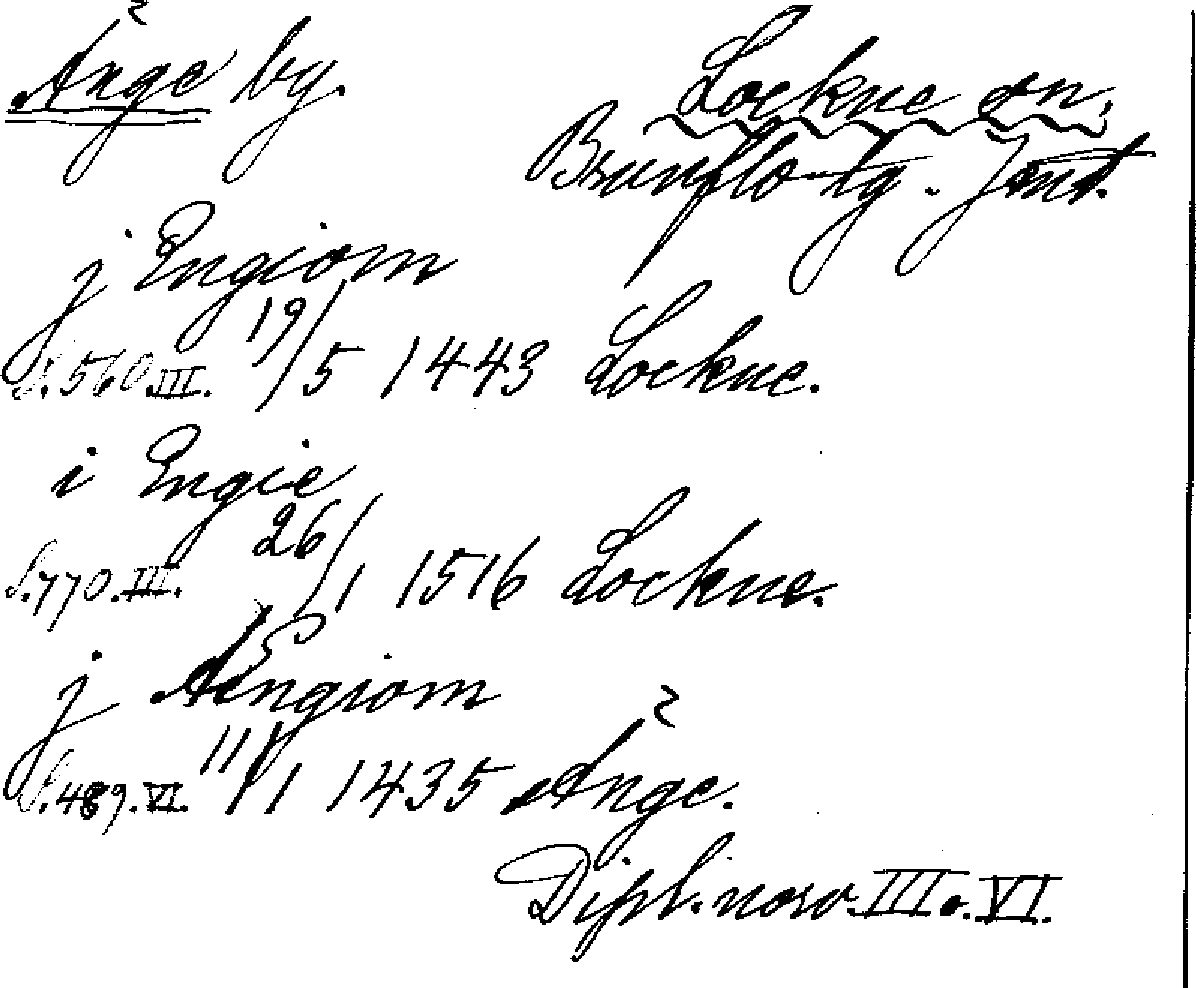 Ånge by.
Lockne sn.
Brunflo tg. Jmt.
j Engiom
S. 560. III. 19/5 1443 Lockne.
i Engie
S. 770. III. 26/1 1516 Lockne.
j Ængiom
S. 489. VI. 11/1 1435 Ånge.
Dipl. norv. III o. VI.